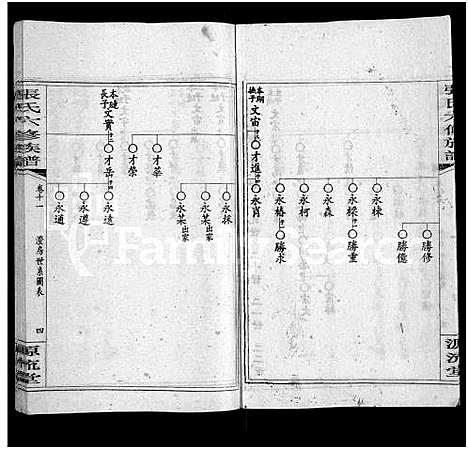 張氏六修族譜
源流堂
本期
撫子
文宙
才進
永肖
永棟
永樑
永森
永柯
永椿
勝修
勝億
勝重
勝求
本璉
長子
文實
才華
才榮
才岳
永採
永某出家
永某出家
永遠
永遵
永通
張氏六修族譜
卷十一
澄房世系圖表
四
源流堂
FamilySearch